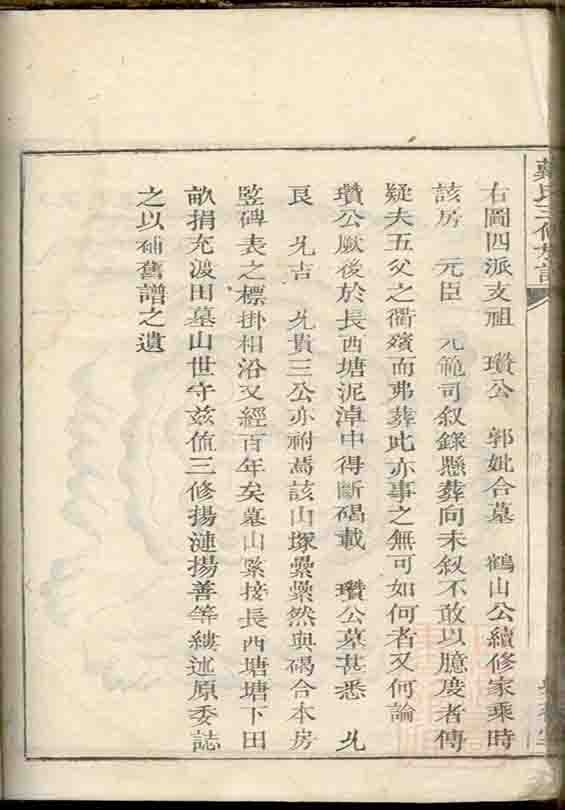 右圖四派支祖 瓚公 郭妣合墓 鶴山公續修家乘時
該房 元臣 元範司叙錄懸葬向未叙不敢以臆度者傳
疑夫五父之衢殯而弗葬此亦事之無可如何者又何論
瓚公厥後於長西塘泥淖中得斷碣載 瓚公墓甚悉 允
艮 允吉 允貴三公亦祔焉該山塚纍纍然與碣合本房
竪碑表之標掛相沿又經百年矣墓山緊接長西塘塘下田
畝捐充渡田墓山世守兹值三修揚漣揚善等縷述原委誌
之以補舊譜之遺
氏三修族譜